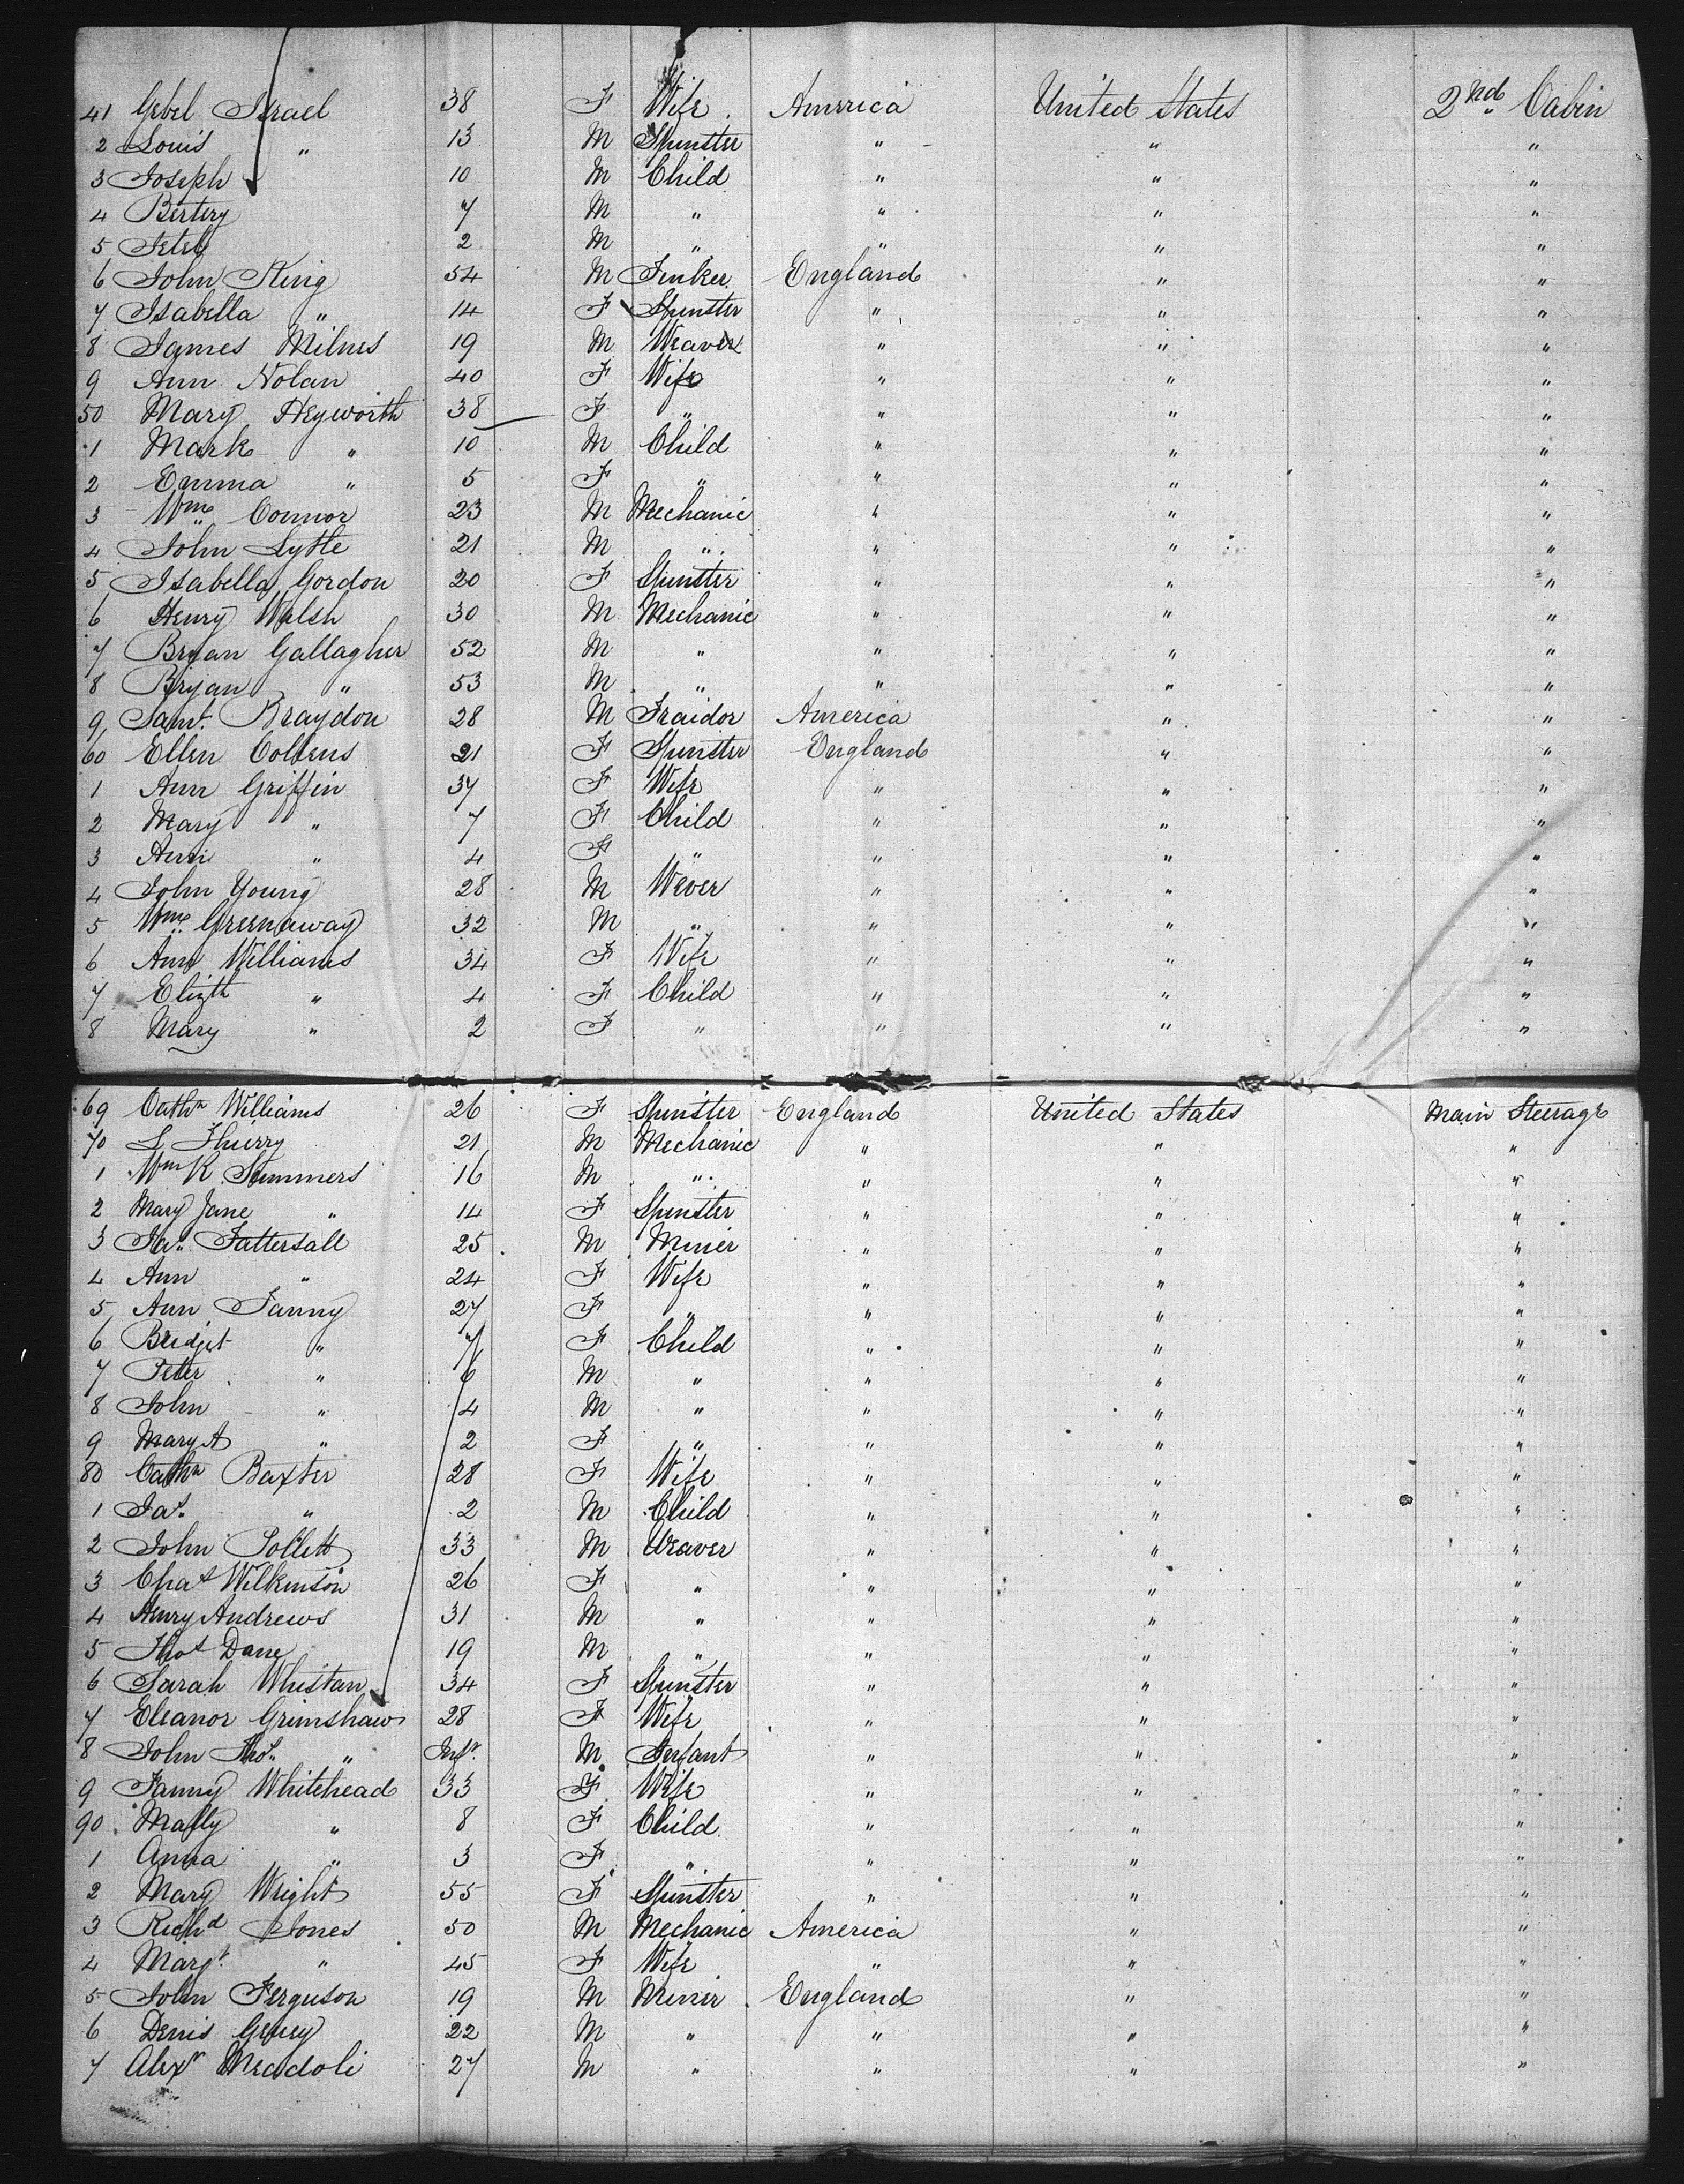 41 Gebel Israel 38 F Wife America United States 2nd Cabin
2 Louis " 13 M Spinster " " "
3 Joseph 10 M Child " " "
4 Bertery 7 M " " " "
5 2 M " " " "
6 John King 54 M Tinker England " "
7 Isabella " 14 F Spinster " " "
8 James Milnes 19 M Weaver " " "
9 Ann Nolan 40 F Wife " " "
50 Mary Heyworth 38 F " " " "
1 Mark " 10 M Child " " "
2 Emma " 5 F " " " "
3 Wm Connor 23 M Mechanic " " "
4 John Lytle 21 M " " " "
5 Isabella Gordon 20 F Spinster " " "
6 Henry Walsh 30 M Mechanic " " "
7 Bryan Gallagher 52 M " " " "
8 Bryan " 53 M " " " "
9 Saml. Braydon 28 M Traidor America " "
60 Ellen Collens 21 F Spinster England " "
1 Ann Griffin 37 F Wife " " "
2 Mary " 7 F Child " " "
3 Ann " 4 F " " " "
4 John Young 28 M Wever " " "
5 Wm Greenaway 32 M " " " "
6 Ann Williams 34 F Wife " " "
7 Elizth " 4 F Child " " "
8 Mary " 2 F " " " "
69 Cathn Williams 26 F Spinster England United States Main Steerage
70 L Thierry 21 M Mechanic " " "
1 Wm K Summers 16 M " " " "
2 Mary Jane " 14 F Spinster " " "
3 Jas. Tattersall 25 M Miner " " "
4 Ann " 24 F Wife " " "
5 Ann Fanny 27 F " " " "
6 Bridget " 7 F Child " " "
7 Peter " 6 M " " " "
8 John " 4 M " " " "
9 Mary A " 2 F " " " "
80 Cathn Baxter 28 F Wife " " "
1 Jas. " 2 M Child " " "
2 John Pollett 33 M Weaver " " "
3 Chas Wilkinson 26 F " " " "
4 Henry Andrews 31 M " " " "
5 Thos Dane 19 M " " " "
6 Sarah Whistan 34 F Spinster " " "
7 Eleanor Grimshaw 28 F Wife " " "
8 John Thos. " Inft. M Infant " " "
9 Fanny Whitehead 33 F Wife " " "
90 Mally " 8 F Child " " "
1 Anna " 3 F " " " "
2 Mary Wright 55 F Spinster " " "
3 Richd Jones 50 M Mechanic America " "
4 Margt. " 45 F Wife " " "
5 John Ferguson 19 M Miner England " "
6 Denis 22 M " " " "
7 Alexr 27 M " " " "